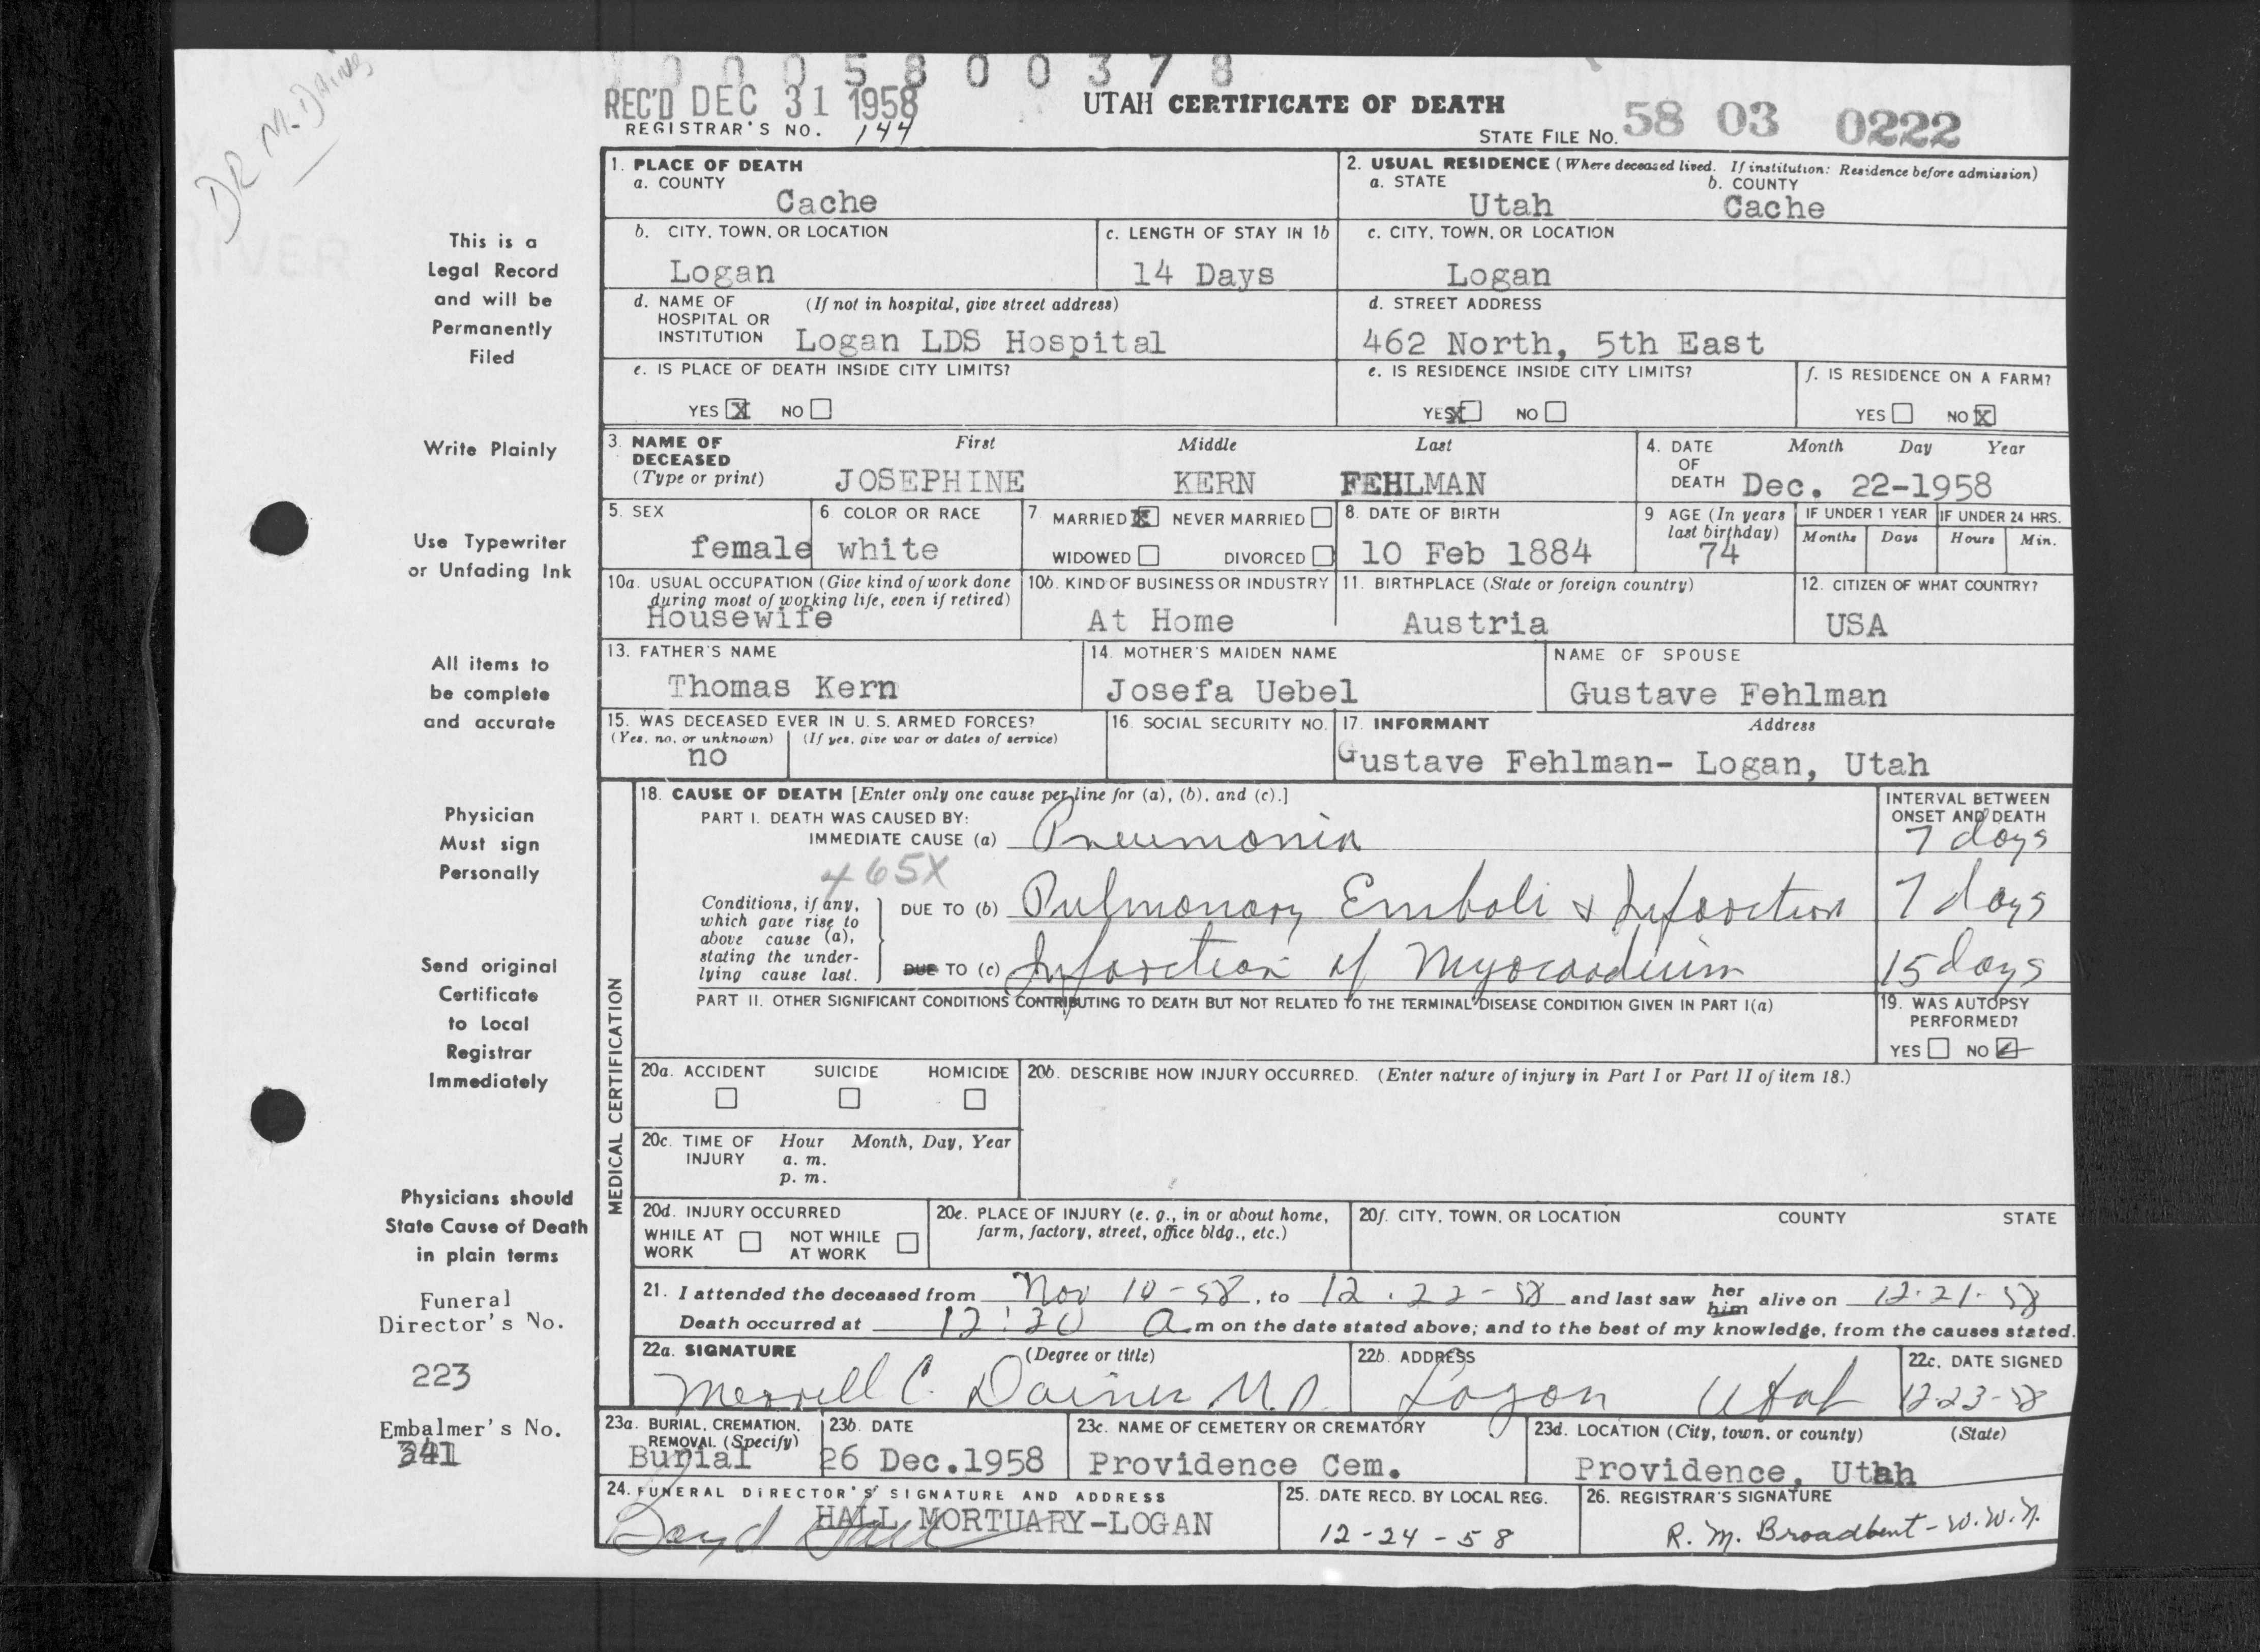 0 0 0 5 8 0 0 3 7 8
DR M. DAINES
REC'D DEC 31 1958
UTAH CERTIFICATE OF DEATH
REGISTRAR'S NO. 144
STATE FILE NO. 58 03 0222
1. PLACE OF DEATH
a. COUNTY
Cache
2. USUAL RESIDENCE (Where deceased lived. If institution: Residence before admission)
a. STATE b. COUNTY
Utah Cache
b. CITY, TOWN, OR LOCATION
Logan
c. LENGTH OF STAY IN 1b
14 Days
c. CITY, TOWN, OR LOCATION
Logan
d. NAME OF HOSPITAL OR INSTITUTION (If not in hospital, give street address)
Logan LDS Hospital
d. STREET ADDRESS
462 North, 5th East
e. IS PLACE OF DEATH INSIDE CITY LIMITS?
YES X NO
e. IS RESIDENCE INSIDE CITY LIMITS?
YES X NO
f. IS RESIDENCE ON A FARM?
YES NO X
3. NAME OF DECEASED (Type or print)
First Middle Last
JOSEPHINE KERN FEHLMAN
4. DATE OF DEATH
Month Day Year
Dec. 22-1958
5. SEX
female
6. COLOR OR RACE
white
7. MARRIED X NEVER MARRIED
WIDOWED DIVORCED
8. DATE OF BIRTH
10 Feb 1884
9 AGE (In years last birthday)
74
IF UNDER 1 YEAR
Months Days
IF UNDER 24 HRS.
Hours Min.
10a. USUAL OCCUPATION (Give kind of work done during most of working life, even if retired)
Housewife
10b. KIND OF BUSINESS OR INDUSTRY
At Home
11. BIRTHPLACE (State or foreign country)
Austria
12. CITIZEN OF WHAT COUNTRY?
USA
13. FATHER'S NAME
Thomas Kern
14. MOTHER'S MAIDEN NAME
Josefa Uebel
NAME OF SPOUSE
Gustave Fehlman
15. WAS DECEASED EVER IN U. S. ARMED FORCES?
(Yes, no, or unknown) (If yes, give war or dates of service)
no
16. SOCIAL SECURITY NO.
17. INFORMANT Address
Gustave Fehlman- Logan, Utah
MEDICAL CERTIFICATION
18. CAUSE OF DEATH [Enter only one cause per line for (a), (b), and (c).]
INTERVAL BETWEEN ONSET AND DEATH
PART I. DEATH WAS CAUSED BY:
IMMEDIATE CAUSE (a) Pneumonia 7 days
465X
Conditions, if any, which gave rise to above cause (a), stating the underlying cause last.
DUE TO (b) Pulmonary Emboli & Infarction 7 days
DUE TO (c) Infarction of Myocardium 15 days
PART II. OTHER SIGNIFICANT CONDITIONS CONTRIBUTING TO DEATH BUT NOT RELATED TO THE TERMINAL DISEASE CONDITION GIVEN IN PART I(a)
19. WAS AUTOPSY PERFORMED?
YES NO
20a. ACCIDENT SUICIDE HOMICIDE
20b. DESCRIBE HOW INJURY OCCURRED. (Enter nature of injury in Part I or Part II of item 18.)
20c. TIME OF INJURY Hour Month, Day, Year
a. m.
p. m.
20d. INJURY OCCURRED
WHILE AT WORK NOT WHILE AT WORK
20e. PLACE OF INJURY (e. g., in or about home, farm, factory, street, office bldg., etc.)
20f. CITY, TOWN, OR LOCATION COUNTY STATE
21. I attended the deceased from Nov 10-58, to 12.22-58 and last saw her him alive on 12.21-58
Death occurred at 12:30 a m on the date stated above; and to the best of my knowledge, from the causes stated.
22a. SIGNATURE (Degree or title)
Merrill C. Daines M.D.
22b. ADDRESS
Logan Utah
22c. DATE SIGNED
12-23-58
23a. BURIAL, CREMATION, REMOVAL (Specify)
Burial
23b. DATE
26 Dec.1958
23c. NAME OF CEMETERY OR CREMATORY
Providence Cem.
23d. LOCATION (City, town, or county) (State)
Providence, Utah
24. FUNERAL DIRECTOR'S SIGNATURE AND ADDRESS
HALL MORTUARY-LOGAN
Boyd Hall
25. DATE RECD. BY LOCAL REG.
12-24-58
26. REGISTRAR'S SIGNATURE
R. M. Broadbent - W.W.N.
This is a
Legal Record
and will be
Permanently
Filed
Write Plainly
Use Typewriter
or Unfading Ink
All items to
be complete
and accurate
Physician
Must sign
Personally
Send original
Certificate
to Local
Registrar
Immediately
Physicians should
State Cause of Death
in plain terms
Funeral
Director's No.
223
Embalmer's No.
341